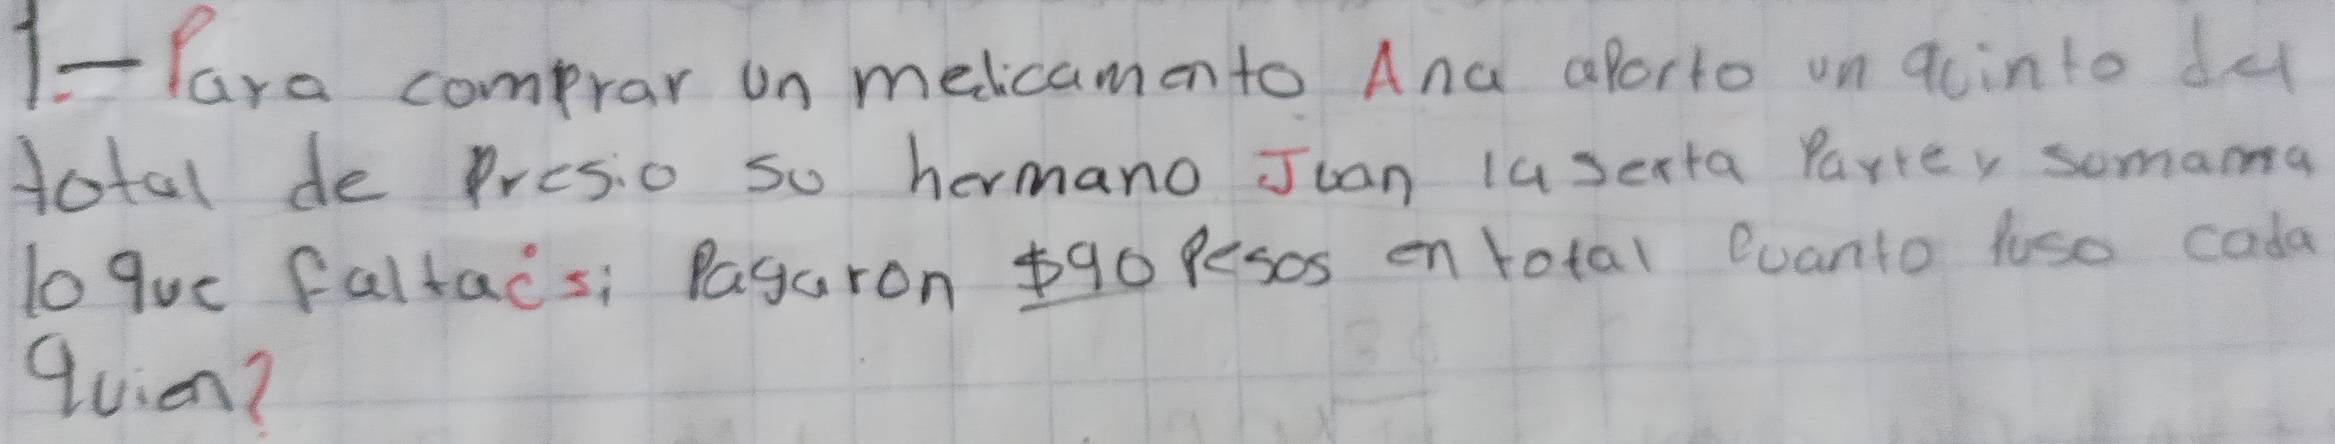 1.- Para comprar un medicamento Ana aporto un quinto del
total de presio su hermano Juan la sexta Parte y su mama
lo que falta ¿si Pagaron $90 Pesos en total cuanto Puso cada
quien?